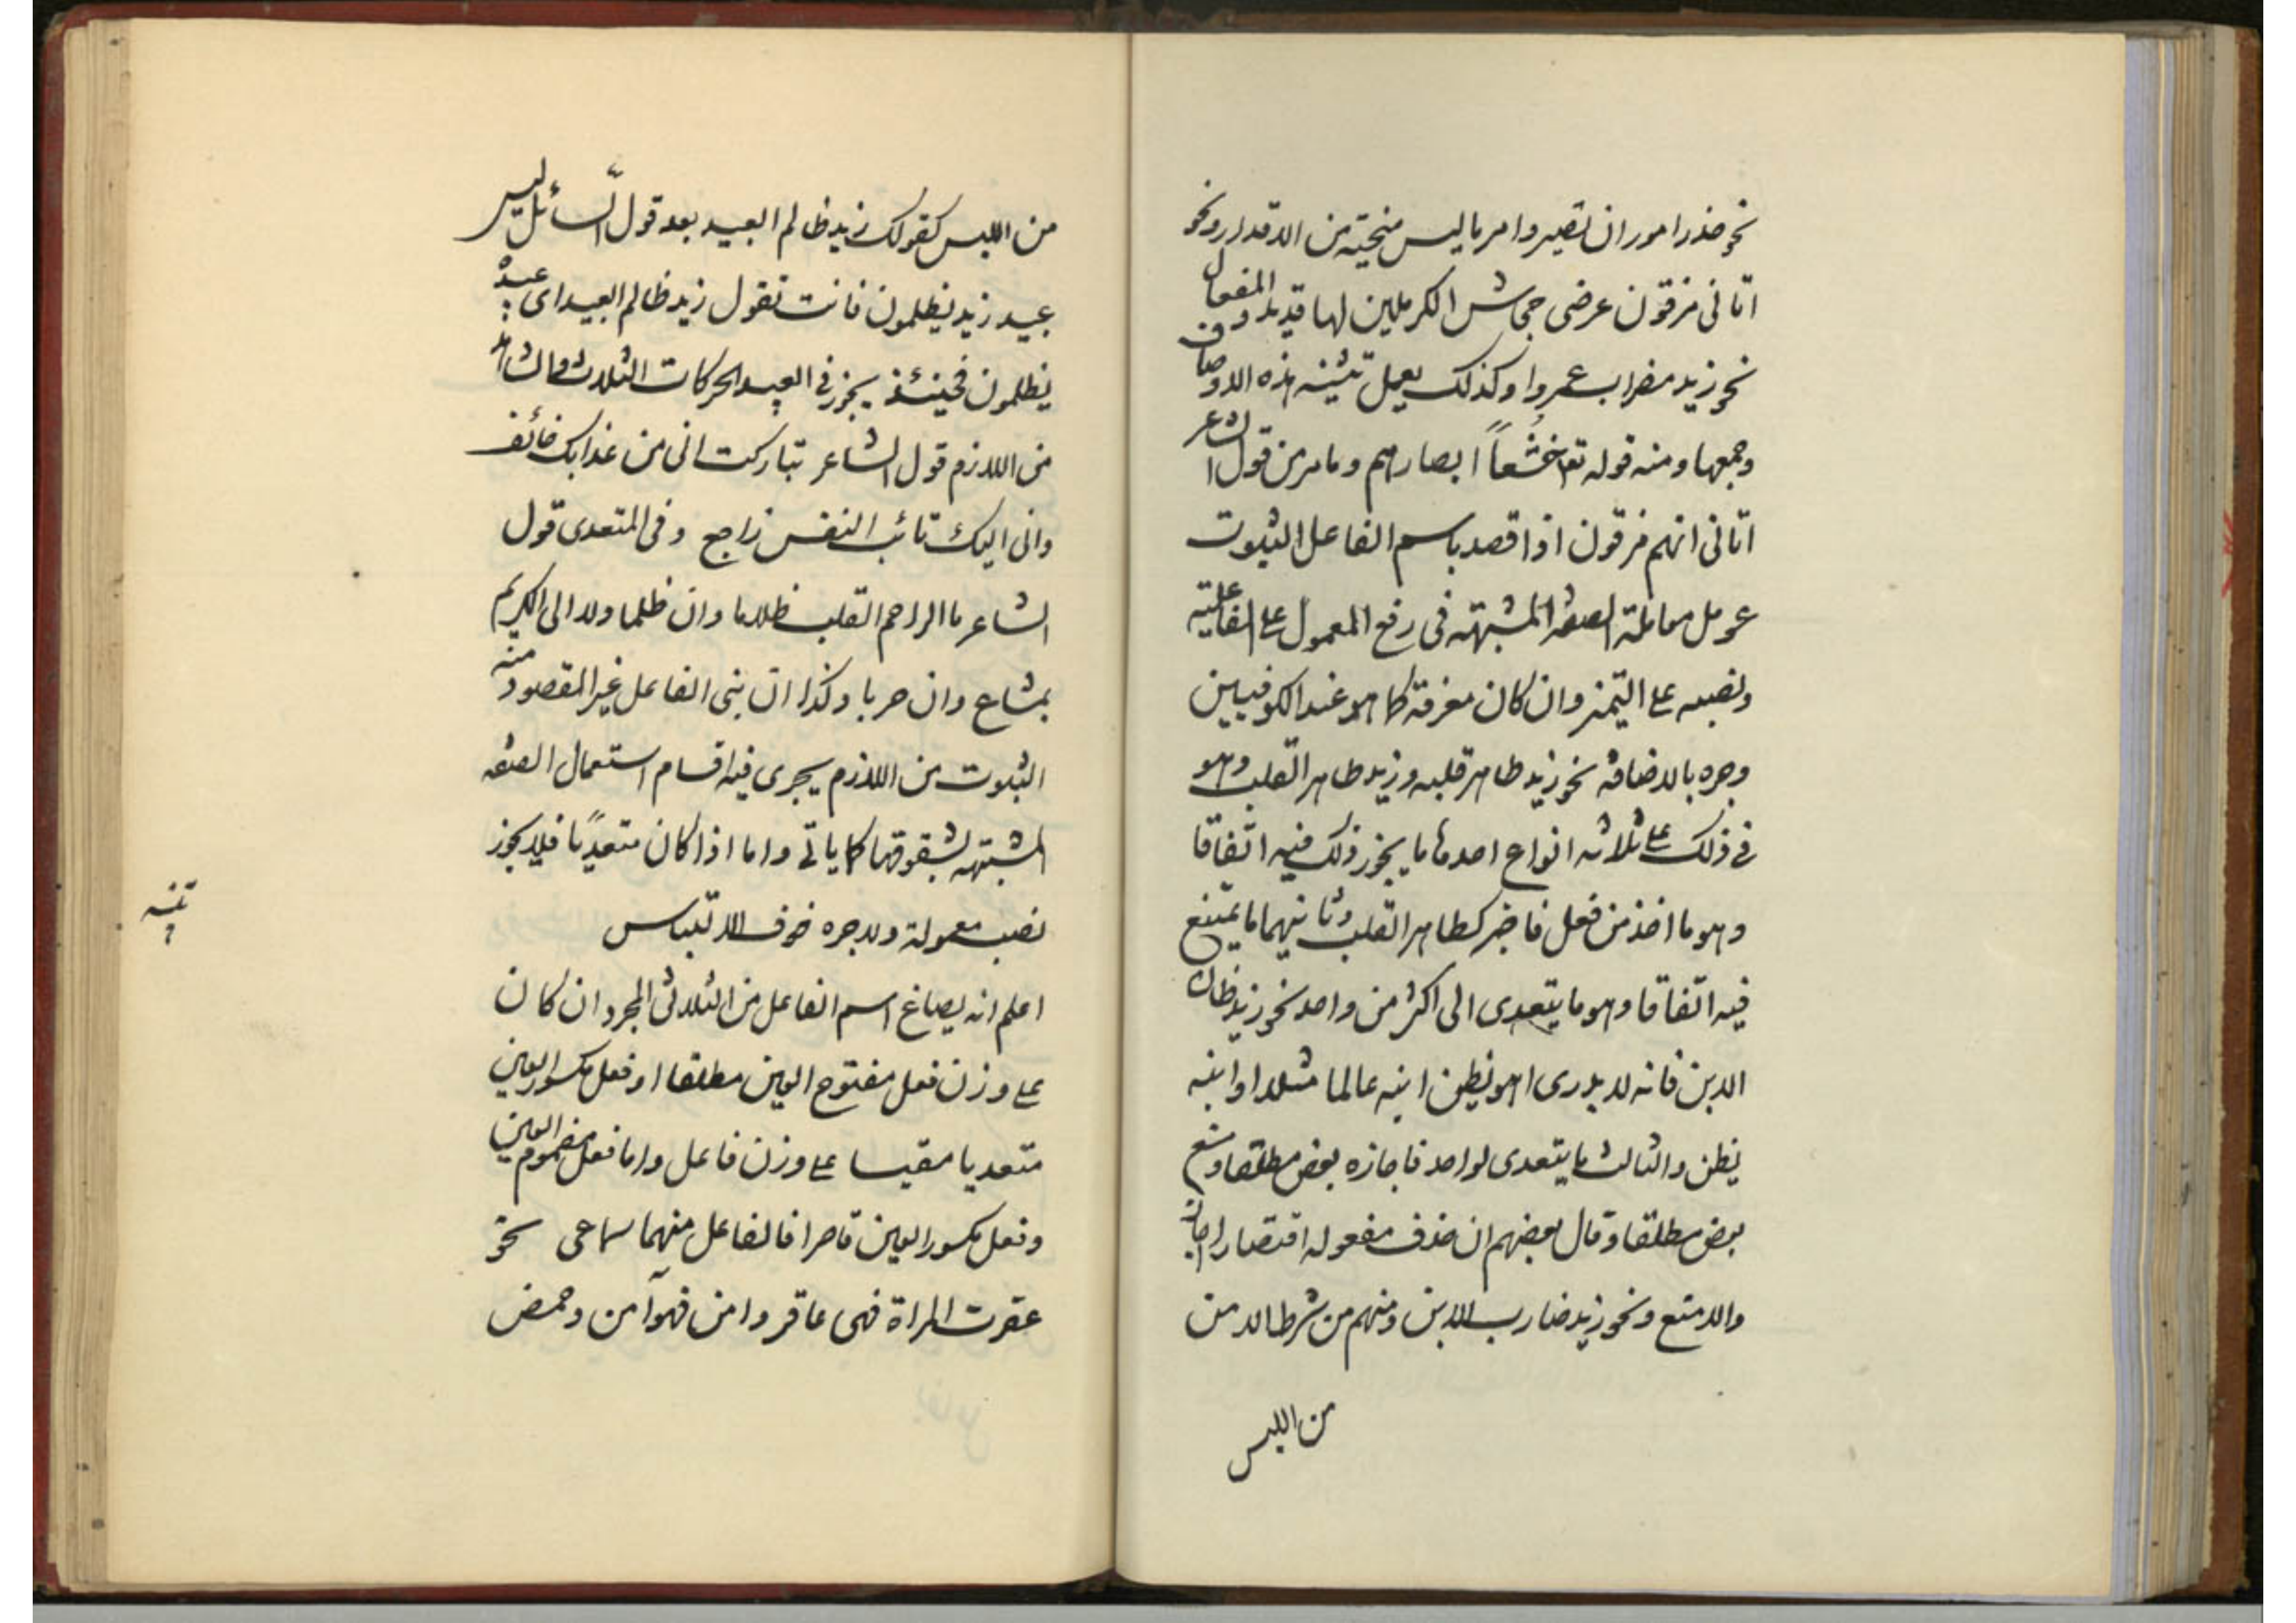 نحو حذر امورا لن تضير وامن ما ليس منجيه من الاقدار ونحو
اتانى مزقون عرضى جحاش الكرملين لها فديد والمفعال
نحو زيد مضراب عمروا وكذلك يعمل تثنيه هذه الاوصاف
وجمعها ومنه قوله تع خشعاً ابصارهم وما مر من قول الشاعر
اتانى انهم مزقون اذا قصد باسم الفاعل الثبوت
عومل معاملة الصفة المشبهة فى رفع المعمول على الفاعلية
ونصبه على التميز وان كان معرفة كما هو عند الكوفيين
وجره بالاضافة نحو زيد طاهر قلبه وزيد طاهر القلب وهو
فى ذلك على ثلاثه انواع احدها ما يجوز ذلك فيه اتفاقا
وهو ما اخذ من فعل قاصر كطاهر القلب وثانيهما ما يمتنع
فيه اتفاقا وهو ما يتعدى الى اكثر من واحد نحو زيد ظان
الابن فانه لا يدرى اهو يظن ابنه عالما مثلا او ابنه
يظن والثالث ما يتعدى لواحد فاجازه بعض مطلقا ومنع
بعض مطلقا وقال بعضهم ان حذف مفعوله اقتصارا جاز
والا متنع ونحو زيد ضارب الابن ومنهم من شرط الامن
من اللبس
من اللبس كقولك زيد ظالم العبيد بعد قول السائل ليس
عبيد زيد يظلمون فانت تقول زيد ظالم العبيد اى عبيده
يظلمون فحينئذ يجوز فى العبيد الحركات الثلاث والشاهد
من اللازم قول الشاعر تباركت انى من عذابك خائف
وانى اليك تائب النفس راجع وفى المتعدى قول
الشاعر ما الراحم القلب ظلاما وان ظلما ولا الكريم
بمناع وان حربا وكذا ان بنى الفاعل غير المقصود منه
الثبوت من اللازم يجرى فيه اقسام استعمال الصفه
المشبهه بشقوقها كما ياتى واما اذا كان متعدياً فلا يجوز
نصب معمولة ولا جره خوف الالتباس
تنبيه
اعلم انه يصاغ اسم الفاعل من الثلاثى المجرد ان كان
على وزن فعل مفتوح العين مطلقا او فعل مكسور العين
متعديا مقيسا على وزن فاعل واما فعل مضموم العين
وفعل مكسور العين قاصرا فالفاعل منهما سماعى نحو
عقرت المراة فهى عاقر وامن فهو آمن وحمض